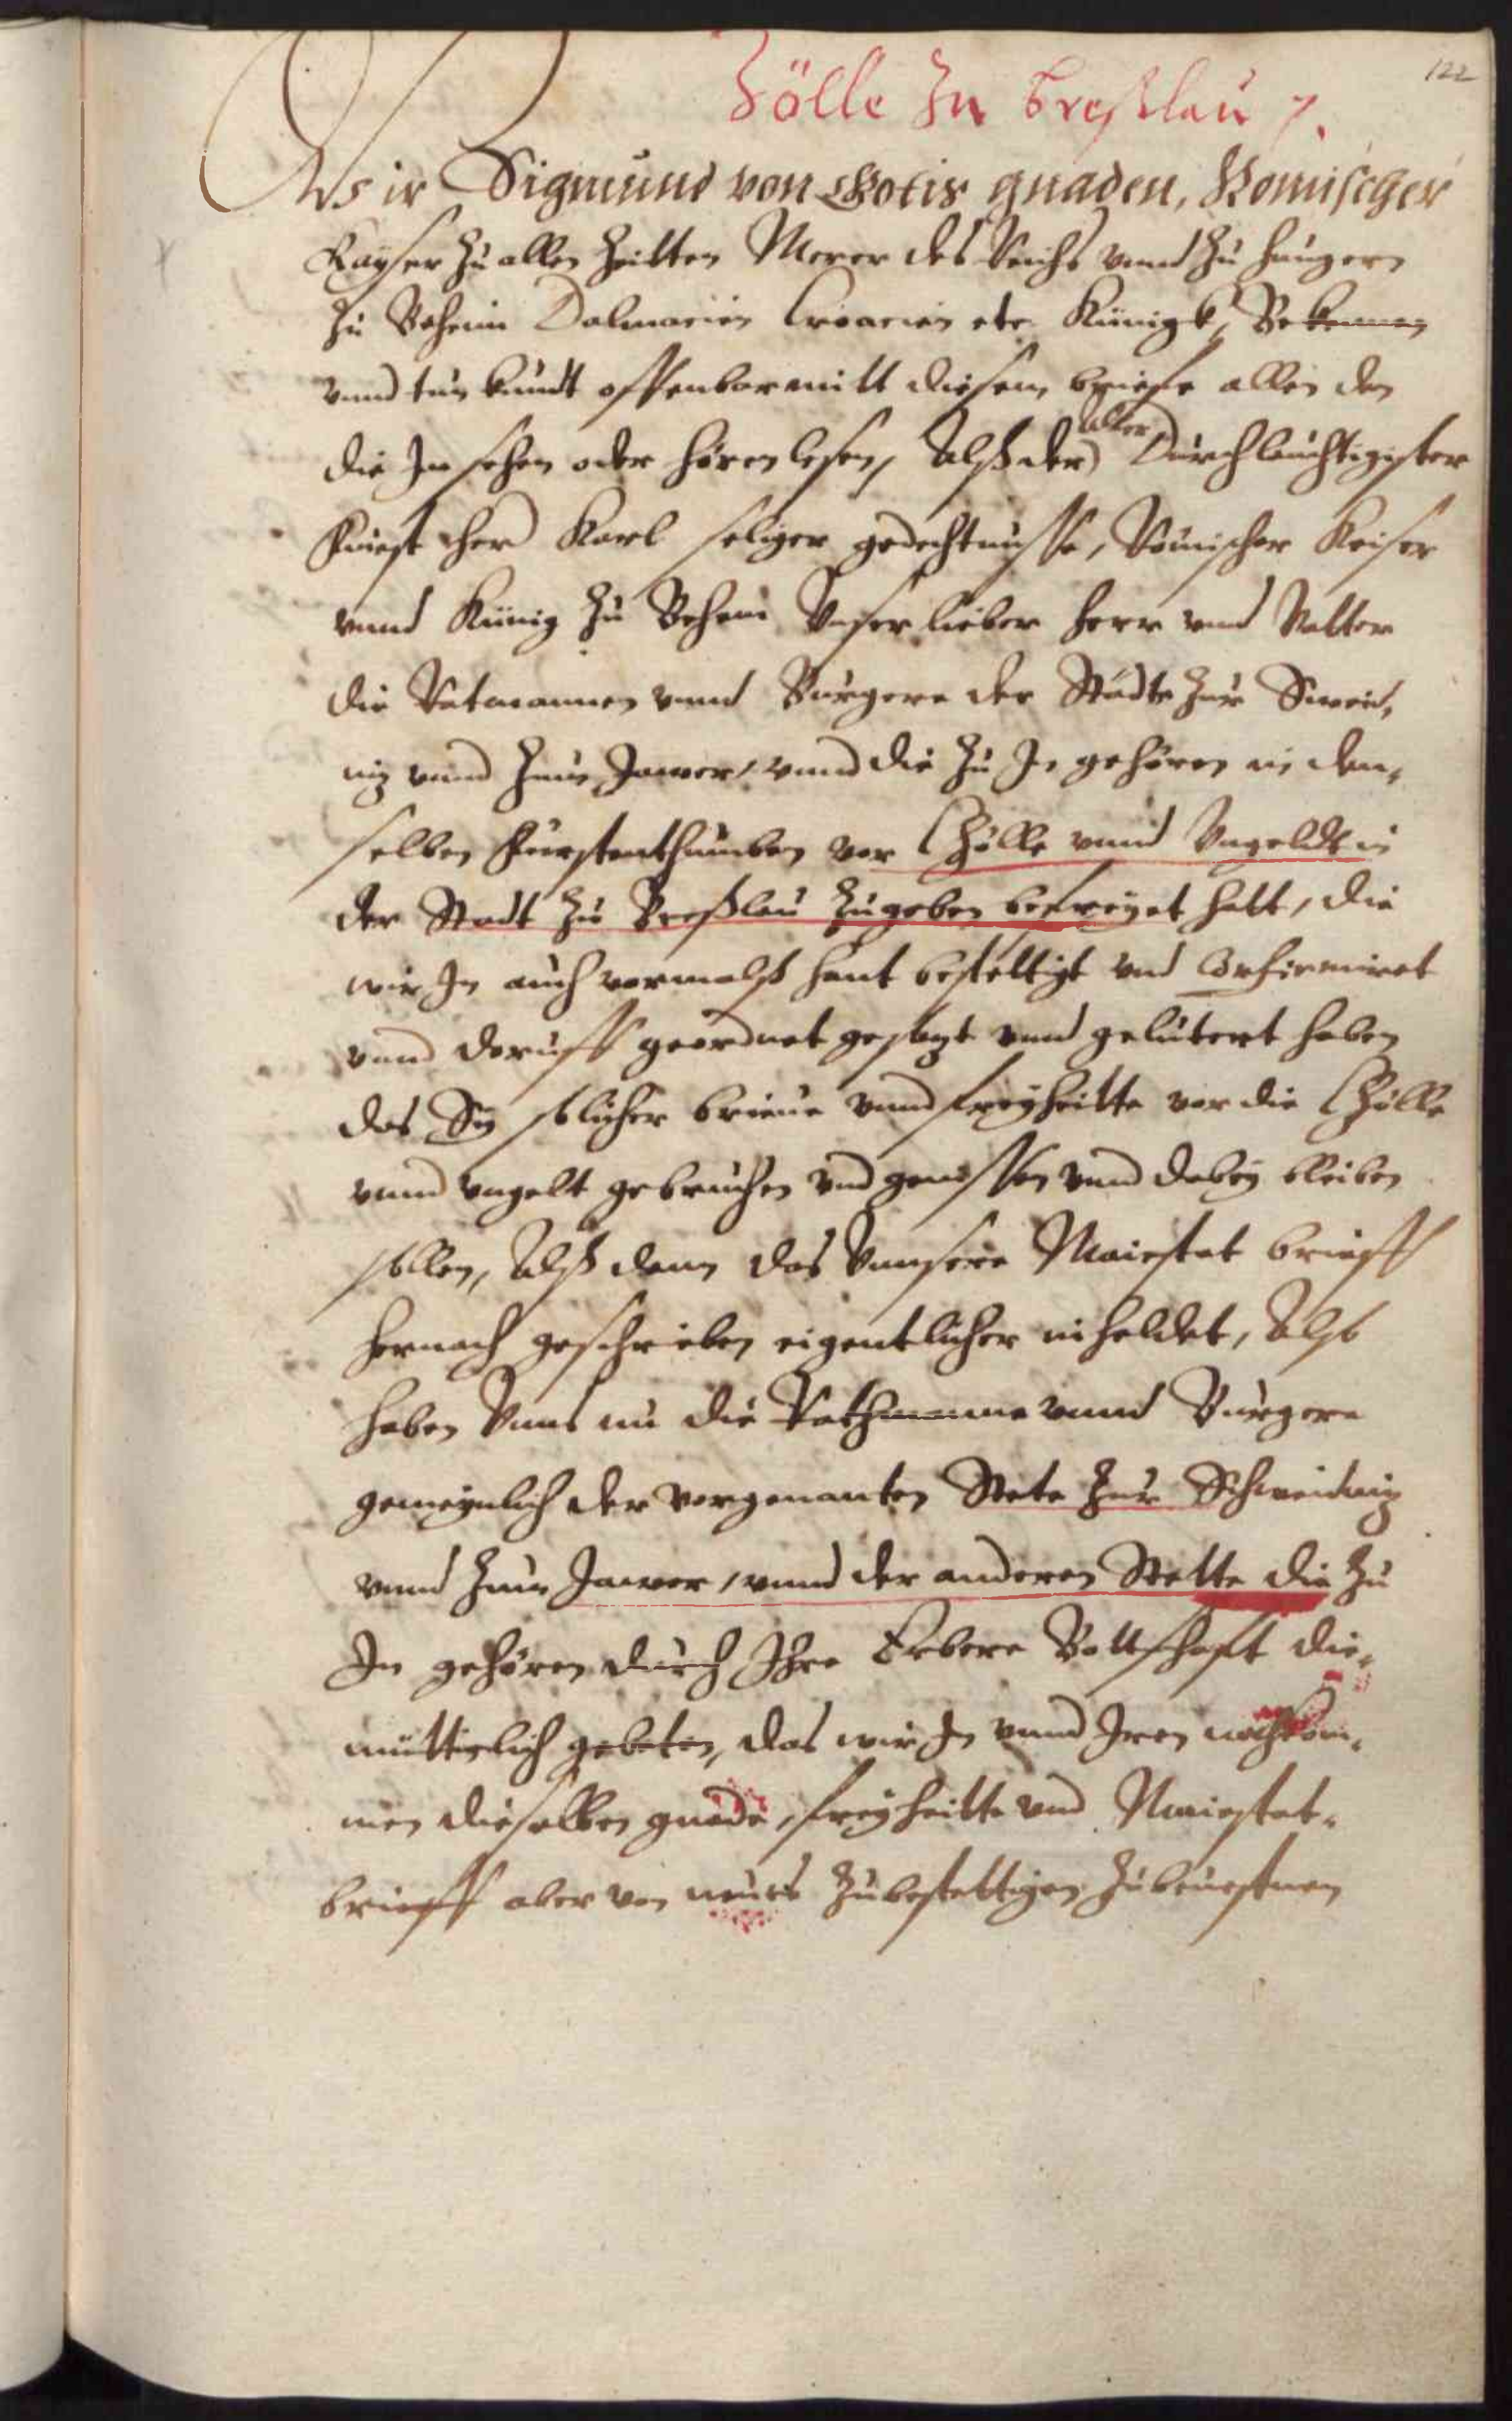 122
Zölle Zu Breßlau 7.
Wir Sigmund von Gotis gnaden, Romischer
Kayser Zu allen Zeitten Merer des Reichs vnnd Zu Hungern
Zu Beheim Dalmacien Croacien etc. Künigk, Bekennen
vnnd tun kundt offenbar mitt diesem briefe allen den
die In sehen oder hören lesen, Alß der aller Durchleuchtigister
Fürst her Karl seliger gedechtnusse, Römischer Keiser
vnnd Künig Zu Behem Vnser lieber Herr vnd Vatter
die Ratmannen vnnd Burgere der Städte Zur Sweid,
niz vnnd Zum Jawer, vnnd die Zu In gehören in den,
selben Fürstenthumben vor Czölle vnnd Vngeldt in
der Stadt Zu Breßlau Zugeben befreyet hatt, die
wir In auch vormalß hant bestettigt vnd Confirmiret
vnnd doruff geordnet gesazt vnnd gelütert haben
das Sy solicher brieue vnnd freyheitte vor die Czölle
vnnd vngelt gebruchen vnd genissen vnnd dabey bleiben
sollen, Alß dann das Vnnsere Maiestat brieff
hernach geschrieben eigentlicher inheldet, Also
haben Vnns nu die Rathmanne vnnd Burgere
gemeynlich der vorgenanten Stete Zur Schweidniz
vnnd Zum Jawer, vnnd der anderen Stette die Zu
In gehören durch Ihre Erbere Bottschafft die,
muttiglich gebeten, das wir In vnnd Iren nachkom,
men dieselben gnade, freyheitte vnd Maiestat,
brieff aber von neües Zubestettigen Zubeuestnen